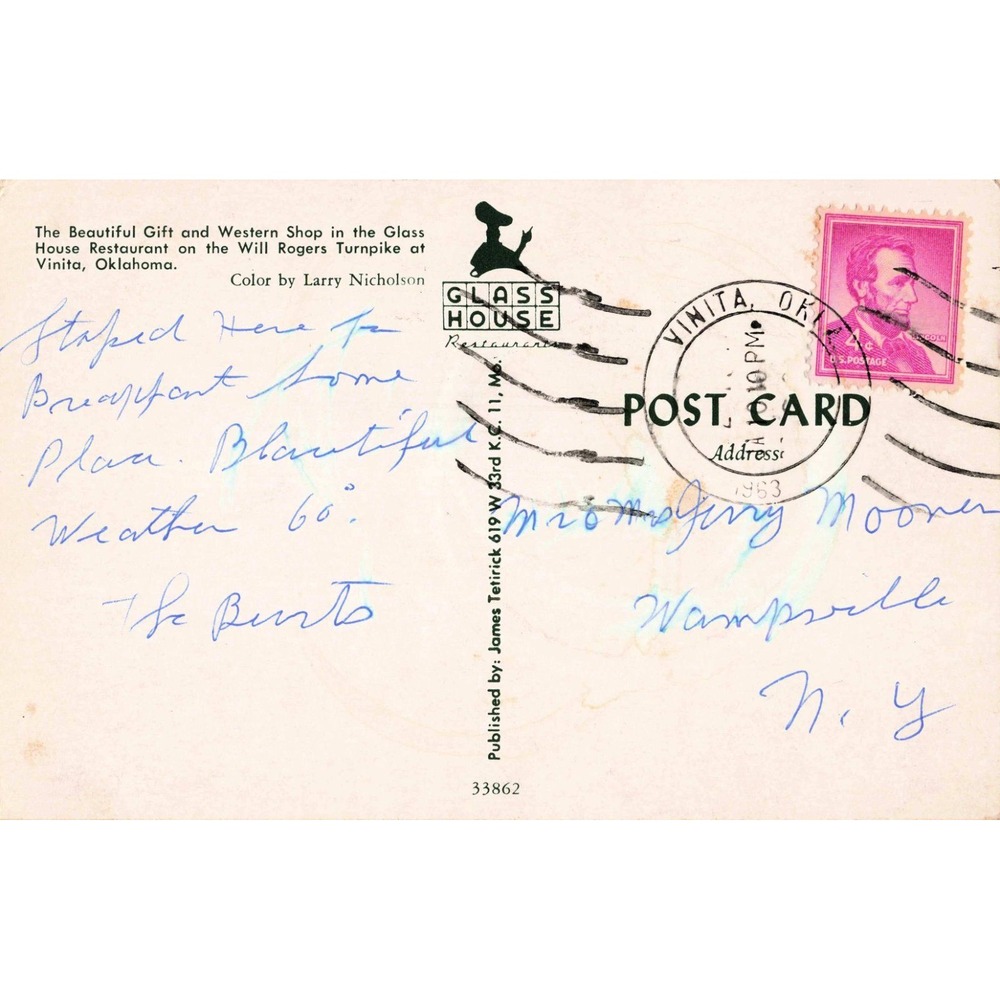 The Beautiful Gift and Western Shop in the Glass
House Restaurant on the Will Rogers Turnpike at
Vinita, Oklahoma.
Color by Larry Nicholson
Stoped Here for
Breakfast Some
Place. Blautiful
Weather 60°.
The Burts
GLASS
HOUSE
Restaurants
Published by: James Tetirick 619 W 33rd K.C. 11, Mo.
33862
VINITA, OKLA.
10 PM
1963
4¢
U.S. POSTAGE
LINCOLN
POST CARD
Address
Mr & Mrs Jerry Mooner
Wampsville
N. Y